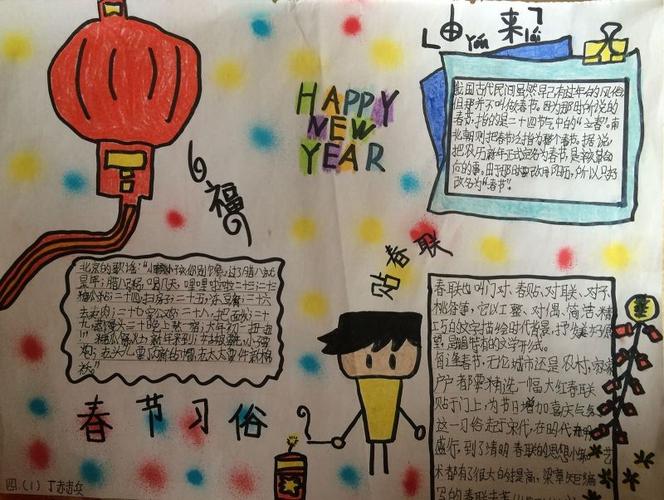 由来
yóu lái
HAPPY
NEW
YEAR
我国古代民间虽然早已有过年的风俗
但那并不叫做春节。因为那时所说的
春节,指的是二十四节气中的"立春"。南
北朝则把春节泛指为整个春节。据说
把农历新年正式定名为春节,是辛亥革命
的事。由于那时要改用阳历,所以只好
改名为"春节"。
福
贴春联
北京的歌谣:
粥,喝几天,哩哩啦啦二十三;二十三
二十四,扫房子;二十五,冻豆腐;二十六
去买肉;二十七,宰公鸡;二十八,把面发;二十
九,蒸馒头;三十晚上熬一宿;大年初一扭一扭
春节习俗
四(1)
春联也叫门对、春贴、对联、对子
桃符等,它以工整、对偶、简洁、精
巧的文字描绘时代背景,抒发美好愿
望,是我国特有的文学形式。
每逢春节,无论城市还是农村,家家
户户都要精选一幅大红春联
贴于门上,为节日增加喜庆气氛
这一习俗起于宋代,在明代开始
盛行,到了清朝,春联的思想性和艺
术都有了很大的提高,梁章钜编
写的春联专著